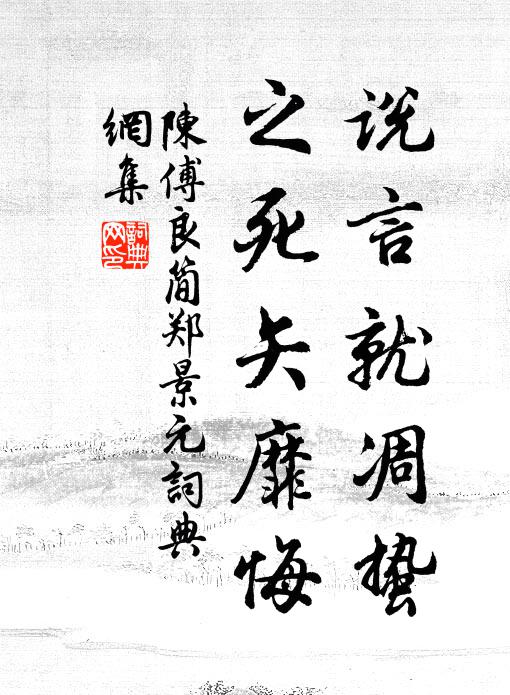 说言就凋蛰
之死矢靡悔
陳傅良简郑景元詞典
網集
詞典
网印